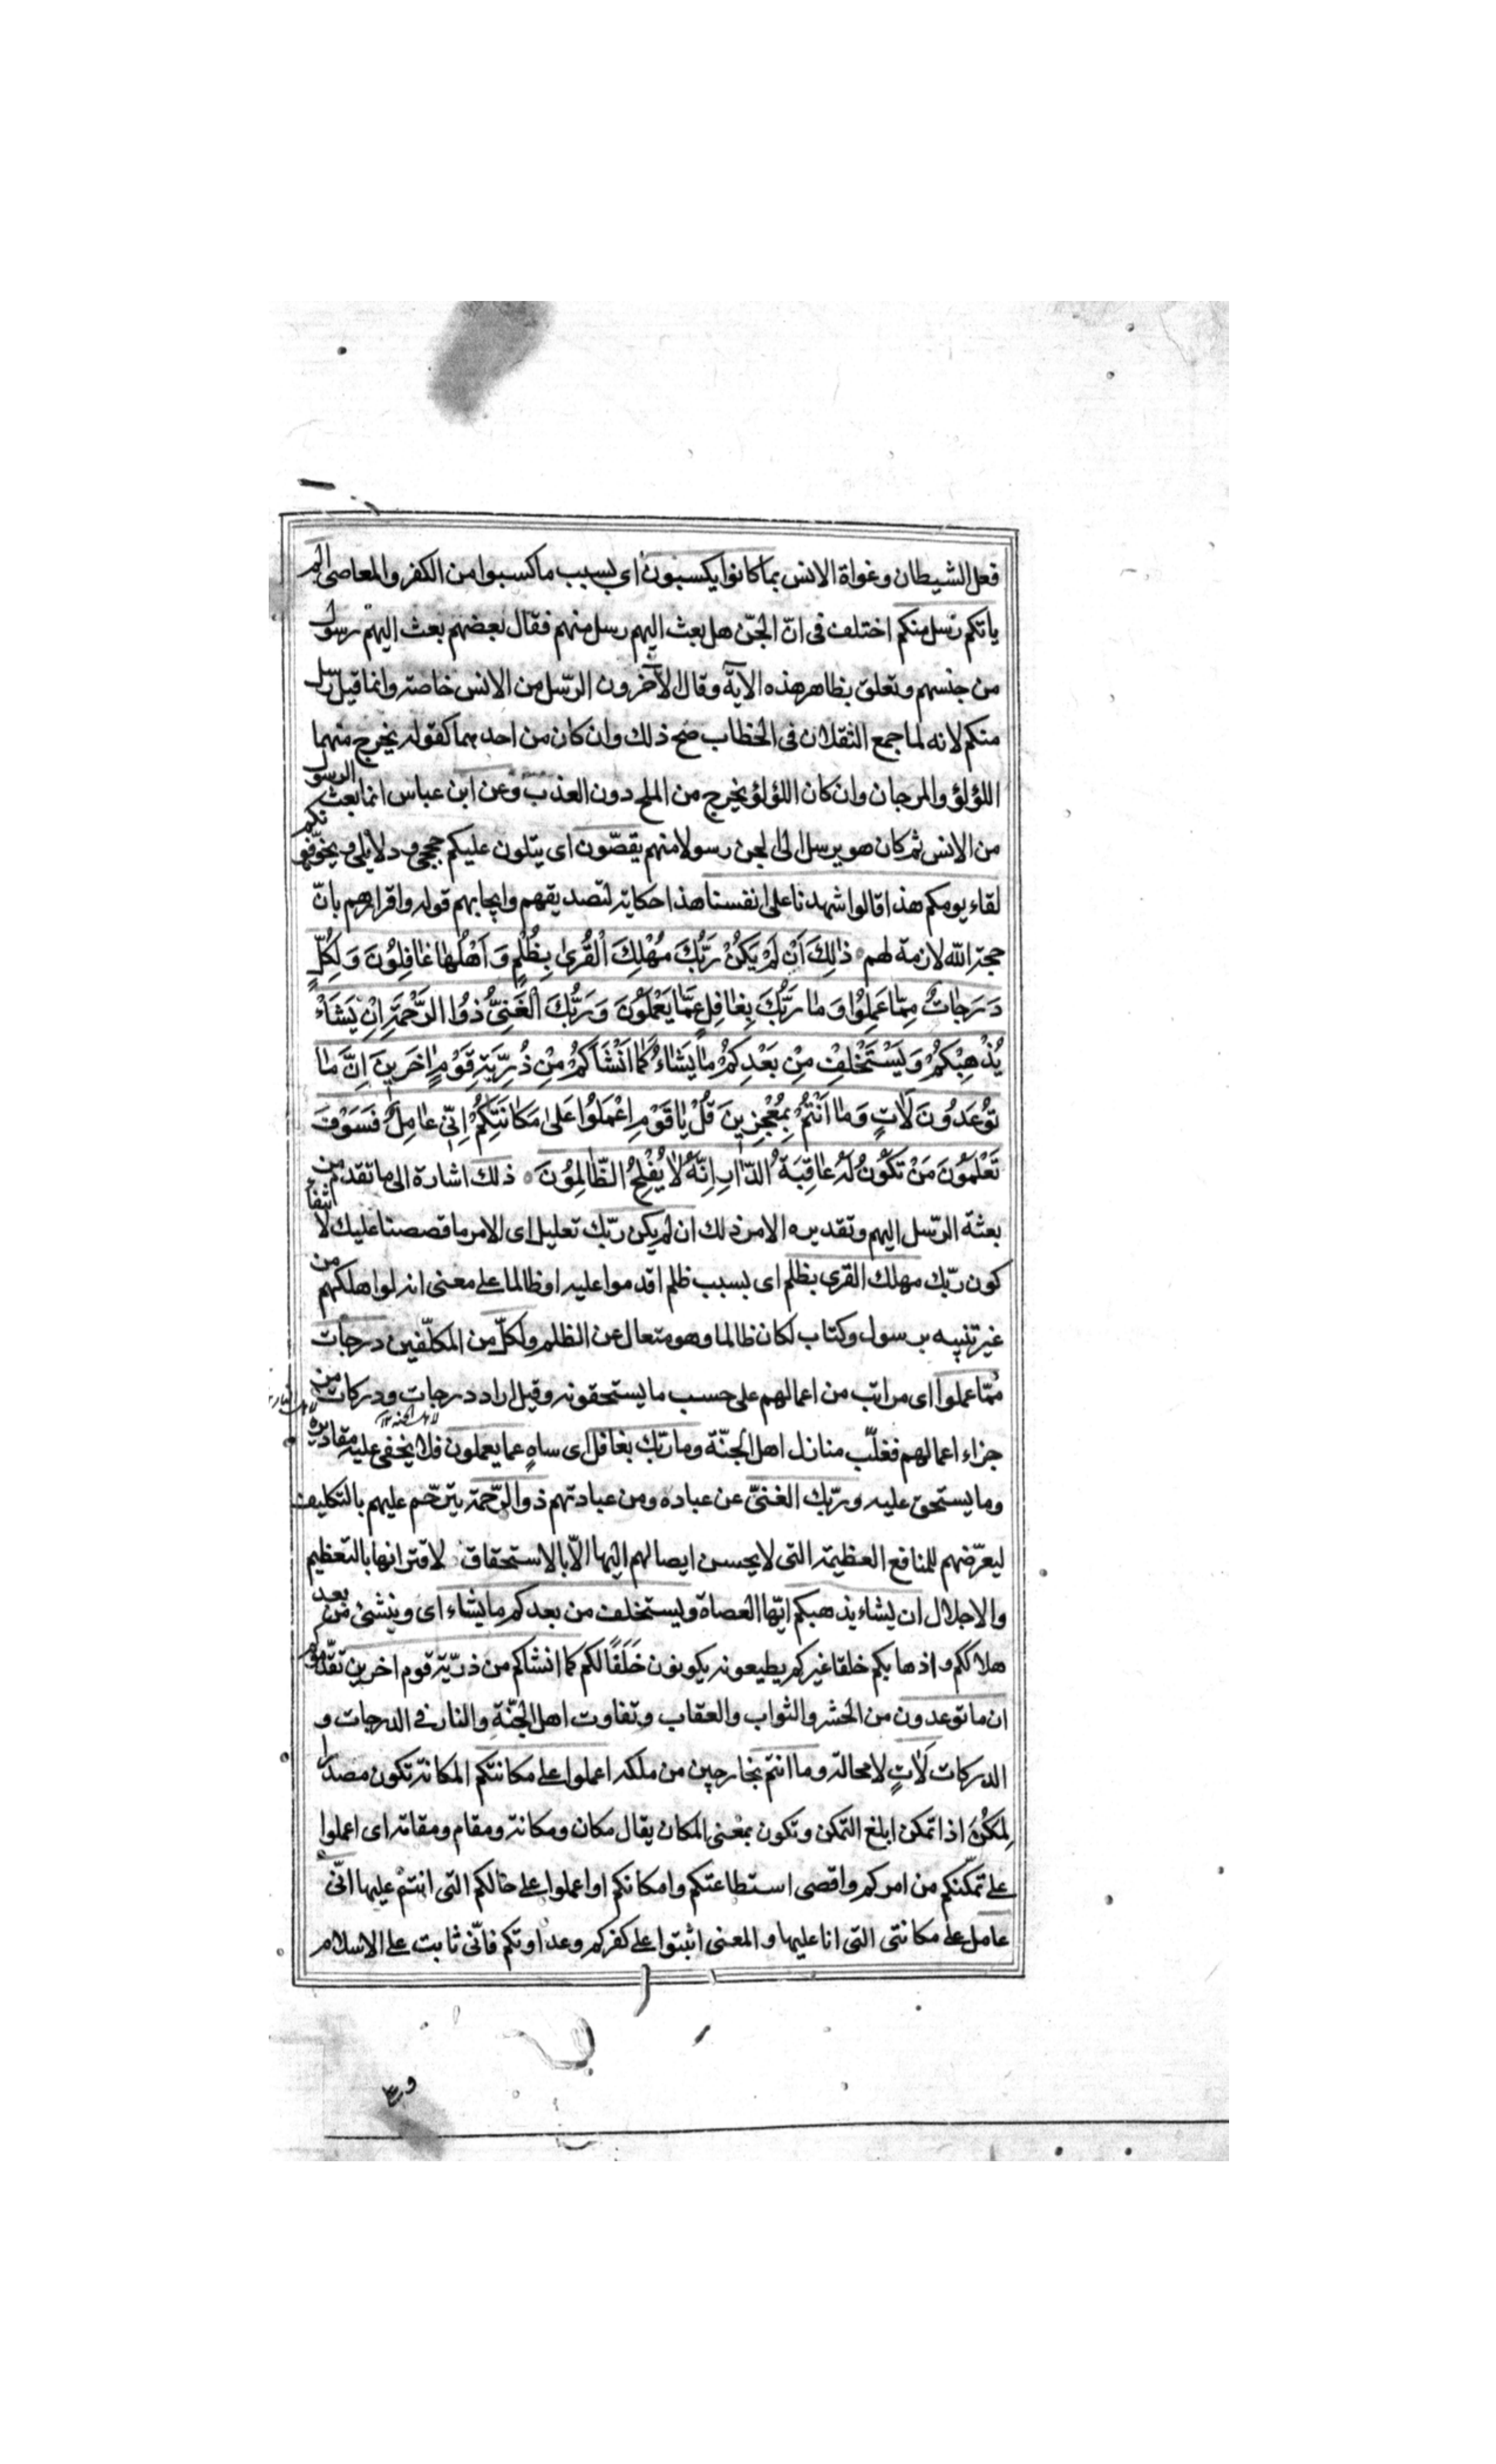 فعل الشيطان وغواة الانس بما كانوا يكسبون اى بسبب ما كسبوا من الكفر والمعاصى الم
ياتكم رسل منكم اختلف فى انّ الجنّ هل بعث اليهم رسل منهم فقال بعضهم بعث اليهم رسول
من جنسهم وتعلق بظاهر هذه الآية وقال الآخرون الرّسل من الانس خاصة وانما قيل رسل
منكم لانه لما جمع الثقلان فى الخطاب صح ذلك وان كان من احدهما كقوله يخرج منهما
اللؤلؤ والمرجان وان كان اللؤلؤ يخرج من الملح دون العذب وعن ابن عباس انما بعث الرسول
من الانس ثم كان هو يرسل الى الجن رسولا منهم يقصّون اى يتلون عليكم حججى ودلايلى ويخوّفونكم
لقاء يومكم هذا قالوا شهدنا على انفسنا هذا حكاية لتصديقهم وايجابهم قوله واقرارهم بانّ
حجة الله لازمة لهم ذٰلِكَ اَنْ لَمْ يَكُنْ رَبُّكَ مُهْلِكَ الْقُرىٰ بِظُلْمٍ وَاَهْلُهٰا غٰافِلُونَ وَلِكُلٍّ
دَرَجٰاتٌ مِمّٰا عَمِلُوا وَمٰا رَبُّكَ بِغٰافِلٍ عَمّٰا يَعْمَلُونَ وَرَبُّكَ الْغَنِىُّ ذُوا الرَّحْمَةِ اِنْ يَشَاْ
يُذْهِبْكُمْ وَيَسْتَخْلِفْ مِنْ بَعْدِكُمْ مٰا يَشٰاءُ كَمٰا اَنْشَاَكُمْ مِنْ ذُرِّيَّةِ قَوْمٍ اٰخَرِينَ اِنَّ مٰا
تُوعَدُونَ لَاٰتٍ وَمٰا اَنْتُمْ بِمُعْجِزِينَ قُلْ يٰا قَوْمِ اعْمَلُوا عَلىٰ مَكٰانَتِكُمْ اِنِّى عٰامِلٌ فَسَوْفَ
تَعْلَمُونَ مَنْ تَكُونُ لَهُ عٰاقِبَةُ الدّٰارِ اِنَّهُ لٰا يُفْلِحُ الظّٰالِمُونَ ذلك اشارة الى ما تقدم من
بعثة الرّسل اليهم وتقديره الامر ذلك ان لم يكن ربّك تعليل اى الامر ما قصصنا عليك لانتفاء
كون ربّك مهلك القرى بظلم اى بسبب ظلم اقدموا عليه او ظالما على معنى انه لو اهلكهم من
غير تنبيه برسول وكتاب لكان ظالما وهو متعال عن الظلم ولكلّ من المكلّفين درجات
ممّا عملوا اى مراتب من اعمالهم على حسب ما يستحقونه وقيل اراد درجات ودركات من
جزاء اعمالهم فغلّب منازل اهل الجنّة وما ربّك بغافل اى ساهٍ عما يعملون فلا يخفى عليه مقاديره
وما يستحق عليه وربّك الغنىّ عن عباده ومن عبادتهم ذو الرّحمة يترحّم عليهم بالتكليف
ليعرّضهم للمنافع العظيمة التى لا يحسن ايصالهم اليها الّا بالاستحقاق لاقترانها بالتعظيم
والاجلال ان يشاء يذهبكم ايّها العصاة ويستخلف من بعدكم ما يشاء اى وينشئ من بعد
هلاككم واذهابكم خلقا غيركم يطيعونه يكونون خَلَفًا لكم كما انشاكم من ذرّية قوم اخرين تقدّموكم
ان ما توعدون من الحشر والثواب والعقاب وتفاوت اهل الجنّة والنار فى الدرجات و
الدركات لَاٰتٍ لا محالة وما انتم بخارجين من ملكه اعملوا على مكانتكم المكانة تكون مصدرا
لِمَكُنَ اذا تمكن ابلغ التمكن وتكون بمعْنى المكان يقال مكان ومكانة ومقام ومقامة اى اعملوا
على تمكّنكم من امركم واقصى استطاعتكم وامكانكم او اعملوا على حالكم التى انتم عليها انّى
عامل على مكانتى التى انا عليها والمعنى اثبتوا على كفركم وعداوتكم فانّى ثابت على الاسلام